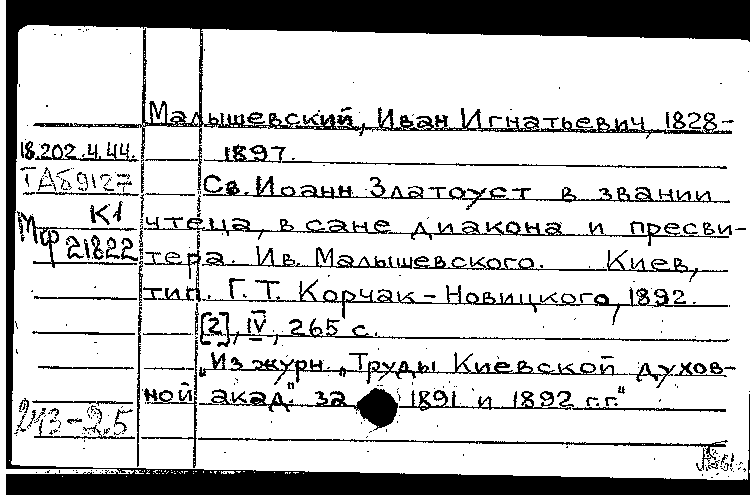 Малышевский, Иван Игнатьевич, 1828-
18.202.4.44.
1897.
ТАБ9127
Св. Иоанн Златоуст в звании
К1
чтеца, в сане диакона и пресви-
Мф 21822
тера. Ив. Малышевского. Киев,
тип. Г. Т. Корчак-Новицкого, 1892.
[2], IV, 265 с.
„Из журн. „Труды Киевской духов-
ной акад." за 1891 и 1892 г.г."
213-25